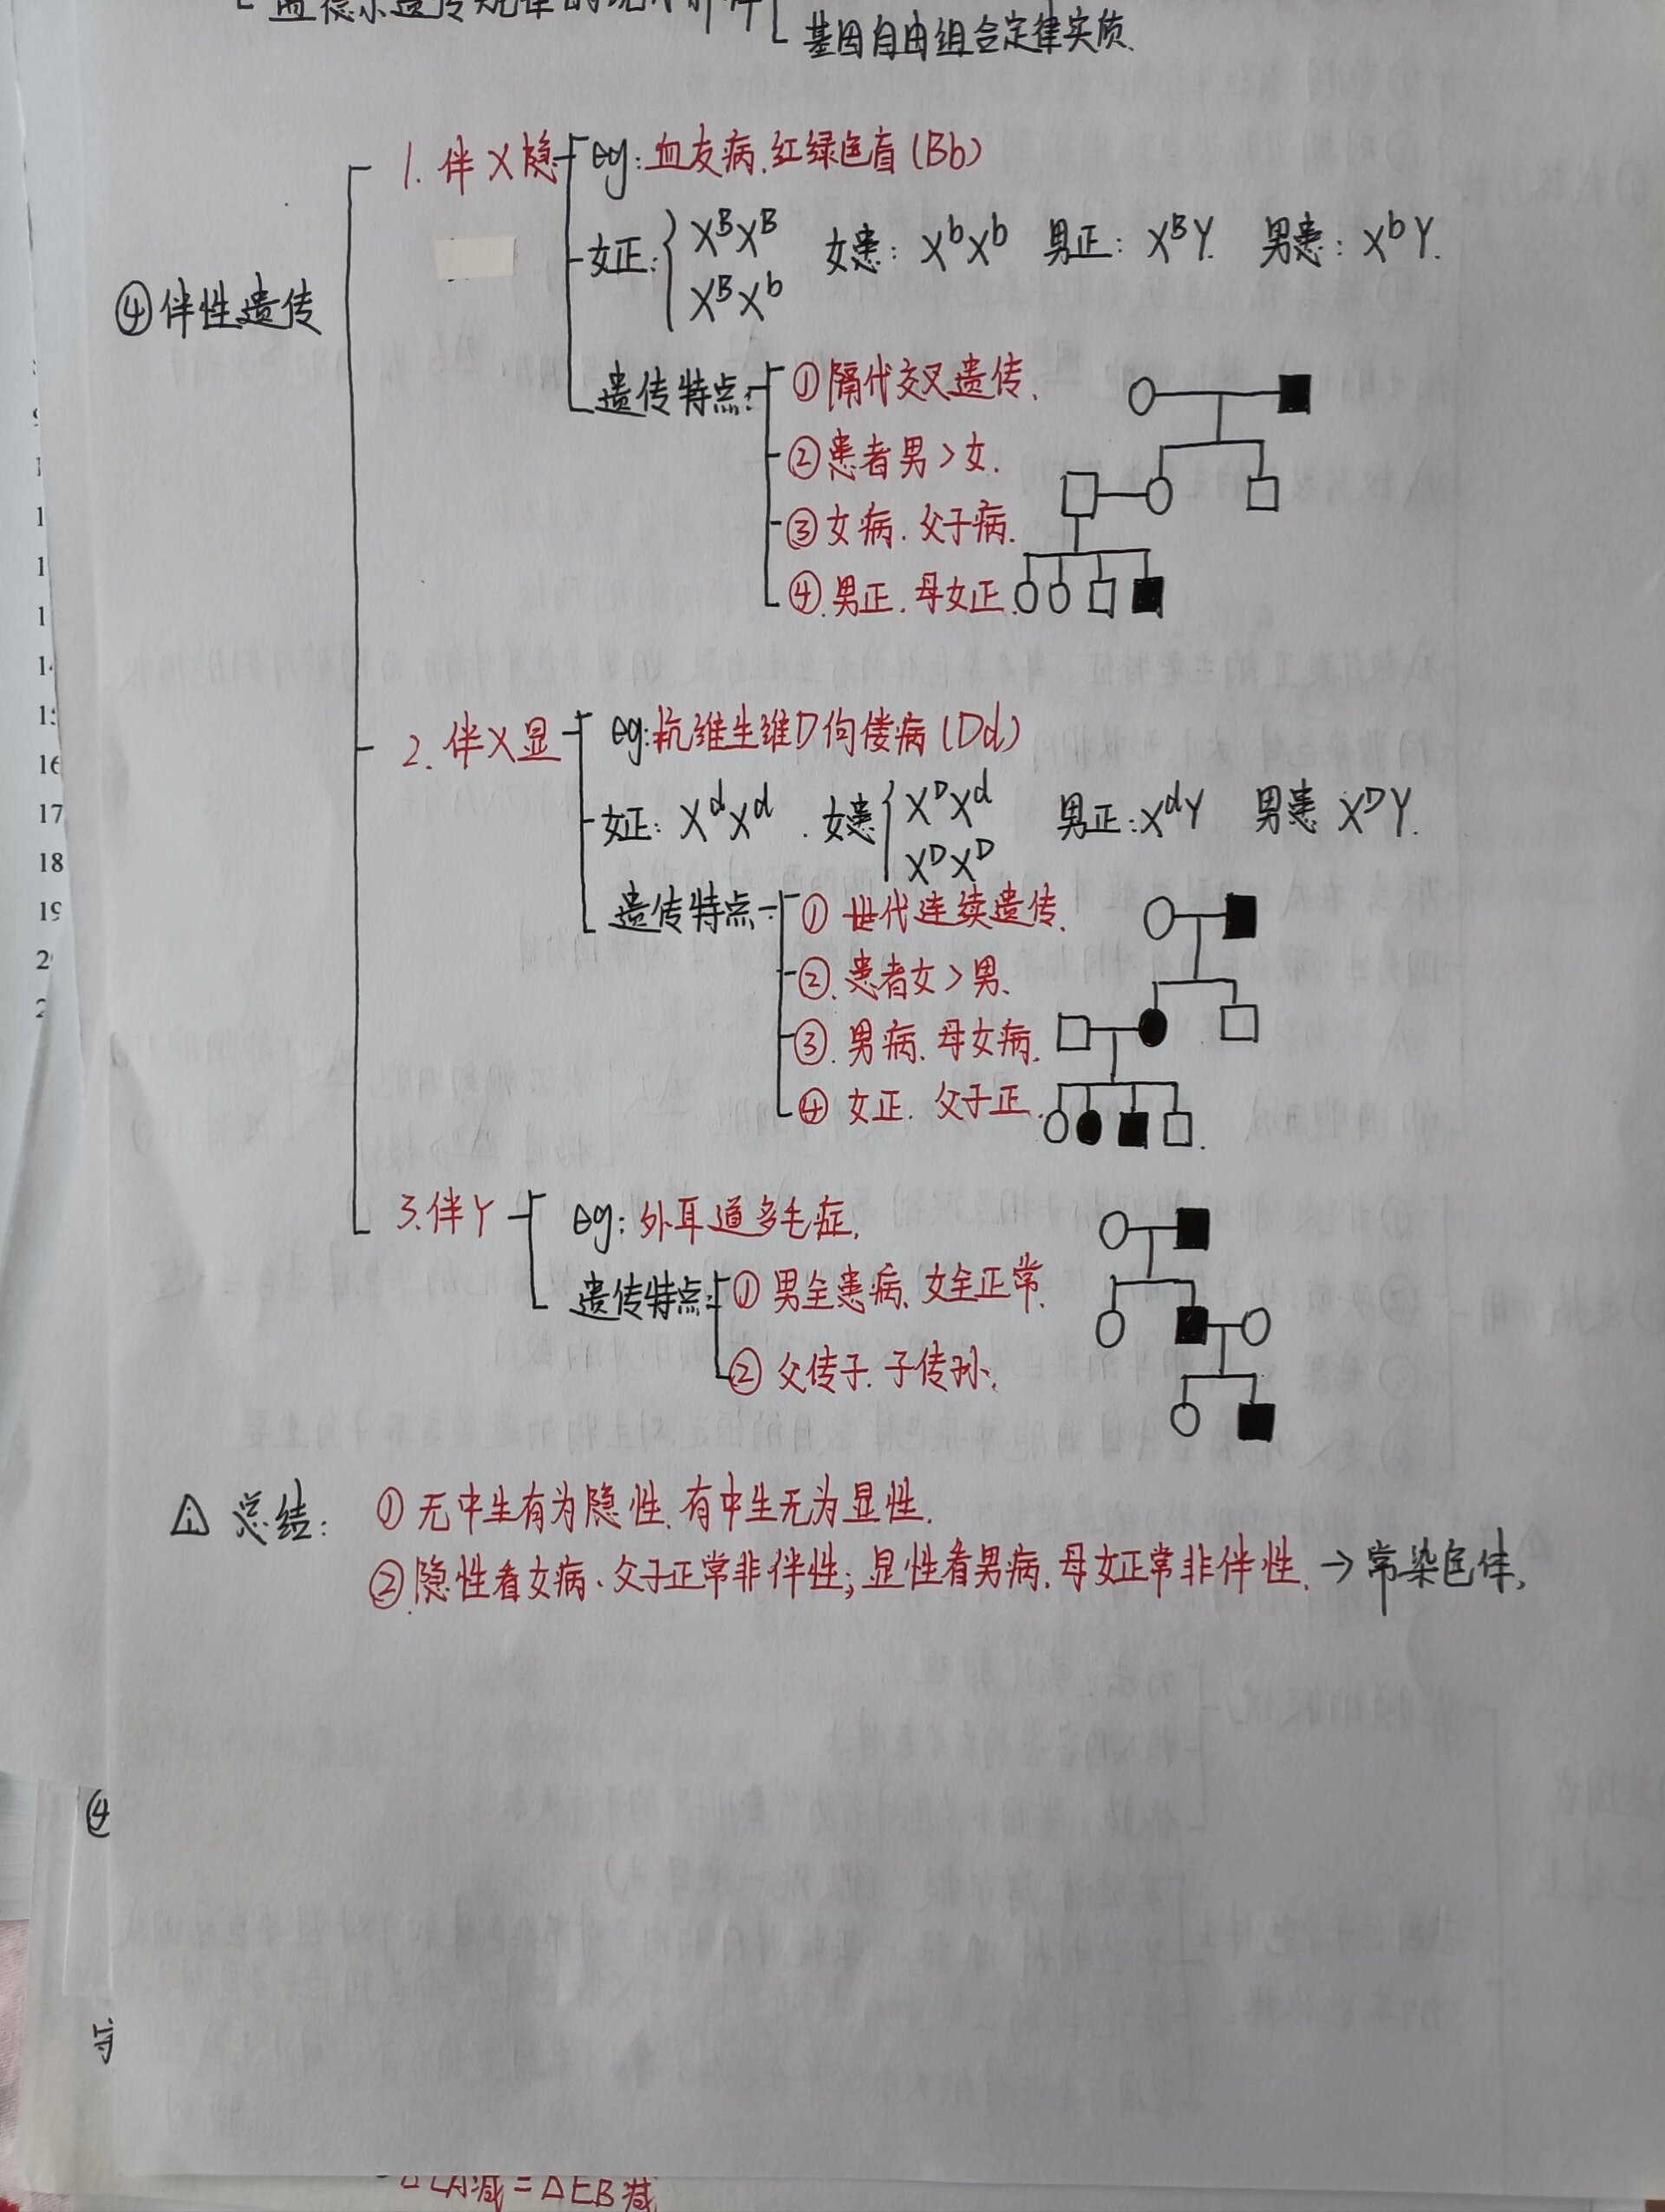 孟德尔遗传规律的现代解释
基因自由组合定律实质.
④伴性遗传
1. 伴X隐
eg: 血友病.红绿色盲(Bb)
女正: XᴮXᴮ 女患: XᵇXᵇ 男正: XᴮY. 男患: XᵇY.
XᴮXᵇ
遗传特点:
①隔代交叉遗传.
②患者男>女.
③女病.父子病.
④.男正.母女正.
2. 伴X显
eg:抗维生维D佝偻病(Dd)
女正: XᵈXᵈ. 女患 XᴰXᵈ 男正:XᵈY 男患 XᴰY.
XᴰXᴰ
遗传特点
① 世代连续遗传.
②.患者女>男.
③.男病.母女病.
④ 女正.父子正.
3.伴Y
eg: 外耳道多毛症.
遗传特点:
①男全患病.女全正常.
② 父传子.子传孙.
总结: ①无中生有为隐性.有中生无为显性.
②.隐性看女病、父子正常非伴性;显性看男病.母女正常非伴性.→常染色体.
④